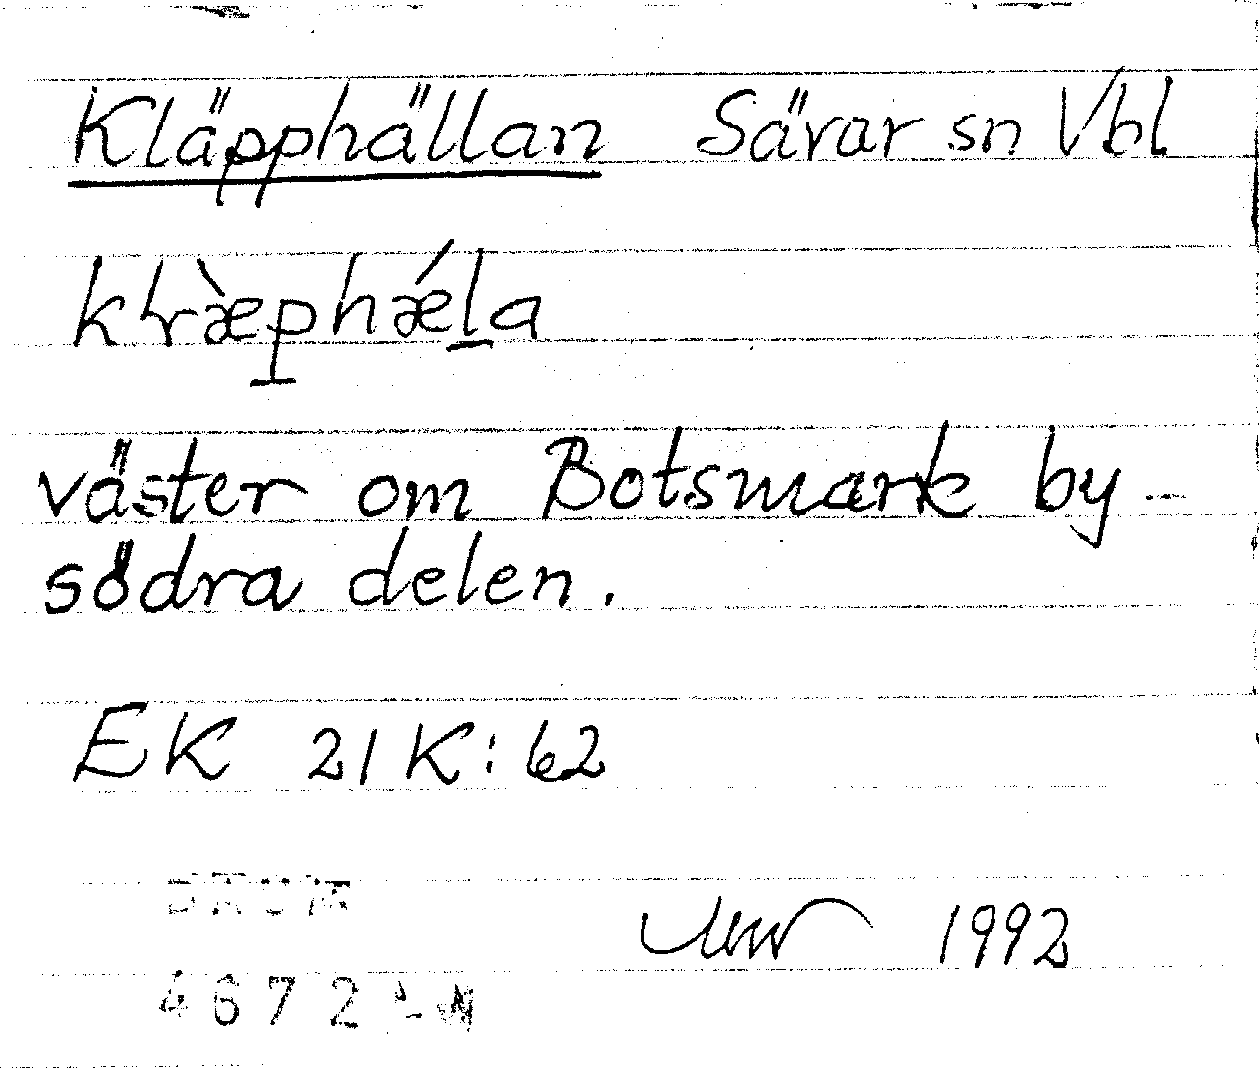 Kläpphällan Sävar sn Vbl
klræ̀phǽl̲a
väster om Botsmark by -
södra delen.
EK 21K:62
DAUM
1992
4672